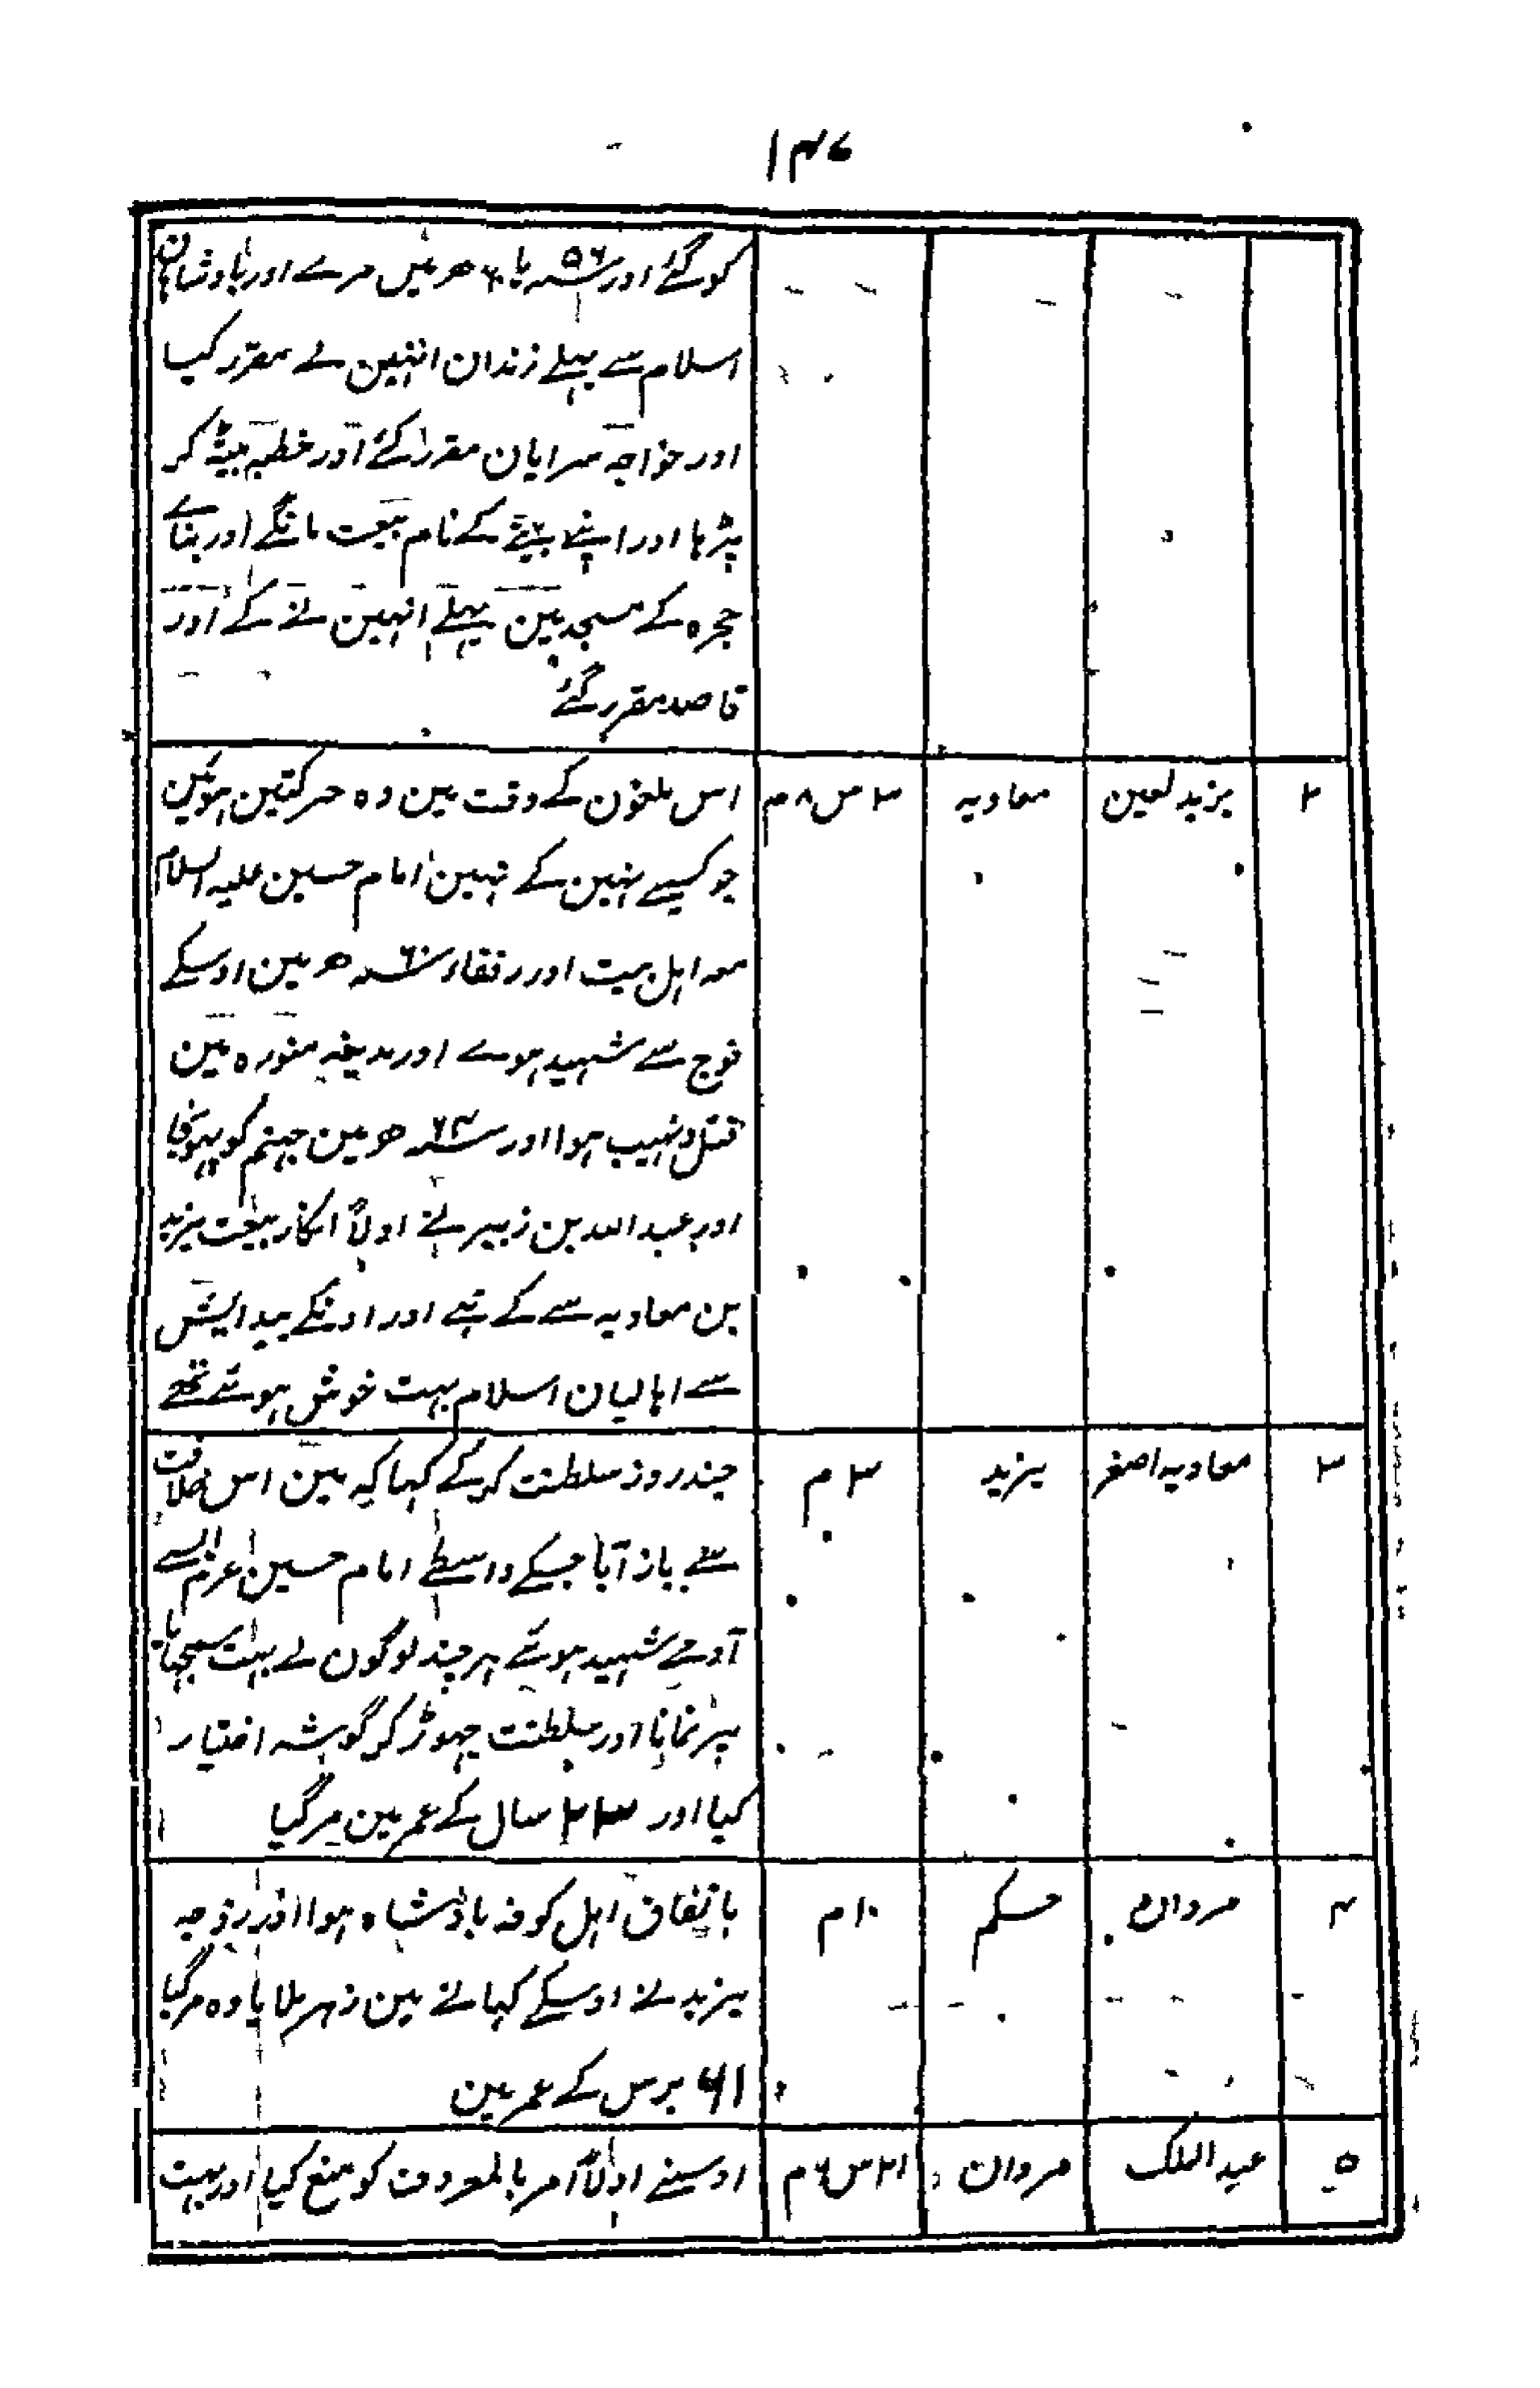 ۱۴۷
کو گئے اور ۵۶ سنہ یا ۶۰ ھ میں مرے اور بادشاہان
اسلام سے پہلے زندان انہیں نے مقرر کیا
اور خواجہ سرایان مقرر کئے اور خطبہ بیٹہ کر
پڑہا اور اپنے بیٹے کے نام بیعت مانگے اور بناے
حجرہ کے مسجد مین پہلے انہین نے کے اور
قاصد مقرر کئے
۲ یزید لعین معاویہ ۳ س ۸ م اس ملعون کے وقت مین وہ حرکتین ہوئین
جو کسیے نہین کے تہین امام حسین علیہ السلام
معہ اہل بیت اور رفقاء سنہ ۶۰ ھ مین اوسیکے
فوج سے شہید ہوے اور مدینہ منورہ مین
قتل و نہیب ہوا اور سنہ ۶۴ ھ مین جہنم کو پہونچا
اور عبد اللہ بن زبیر نے اولاً انکار بیعت یزید
بن معاویہ سے کے تہے اور اونکے پیدایش
سے اہالیان اسلام بہت خوش ہوئے تھے
۳ معاویہ اصغر یزید ۳ م چند روز سلطنت کر کے کہا کہ مین اس خلافت
سے باز آیا جسکے واسطے امام حسین عرم ایسے
آدمے شہید ہوئے ہر چند لوگون نے بہت سمجہایا
پر نمانا اور سلطنت چہوڑ کر گوشہ اختیار
کیا اور ۲۳ سال کے عمر مین مر گیا
۴ مروان حکم ۱۰ م باتفاق اہل کوفہ بادشاہ ہوا اور زوجہ
یزید نے اوسیکے کہانے مین زہر ملایا وہ مر گیا
۶۱ برس کے عمر مین
۵ عبد الملک مروان ۲۱ س ۶ م اوسینے اولاً امر بالمعروف کو منع کیا اور بہت